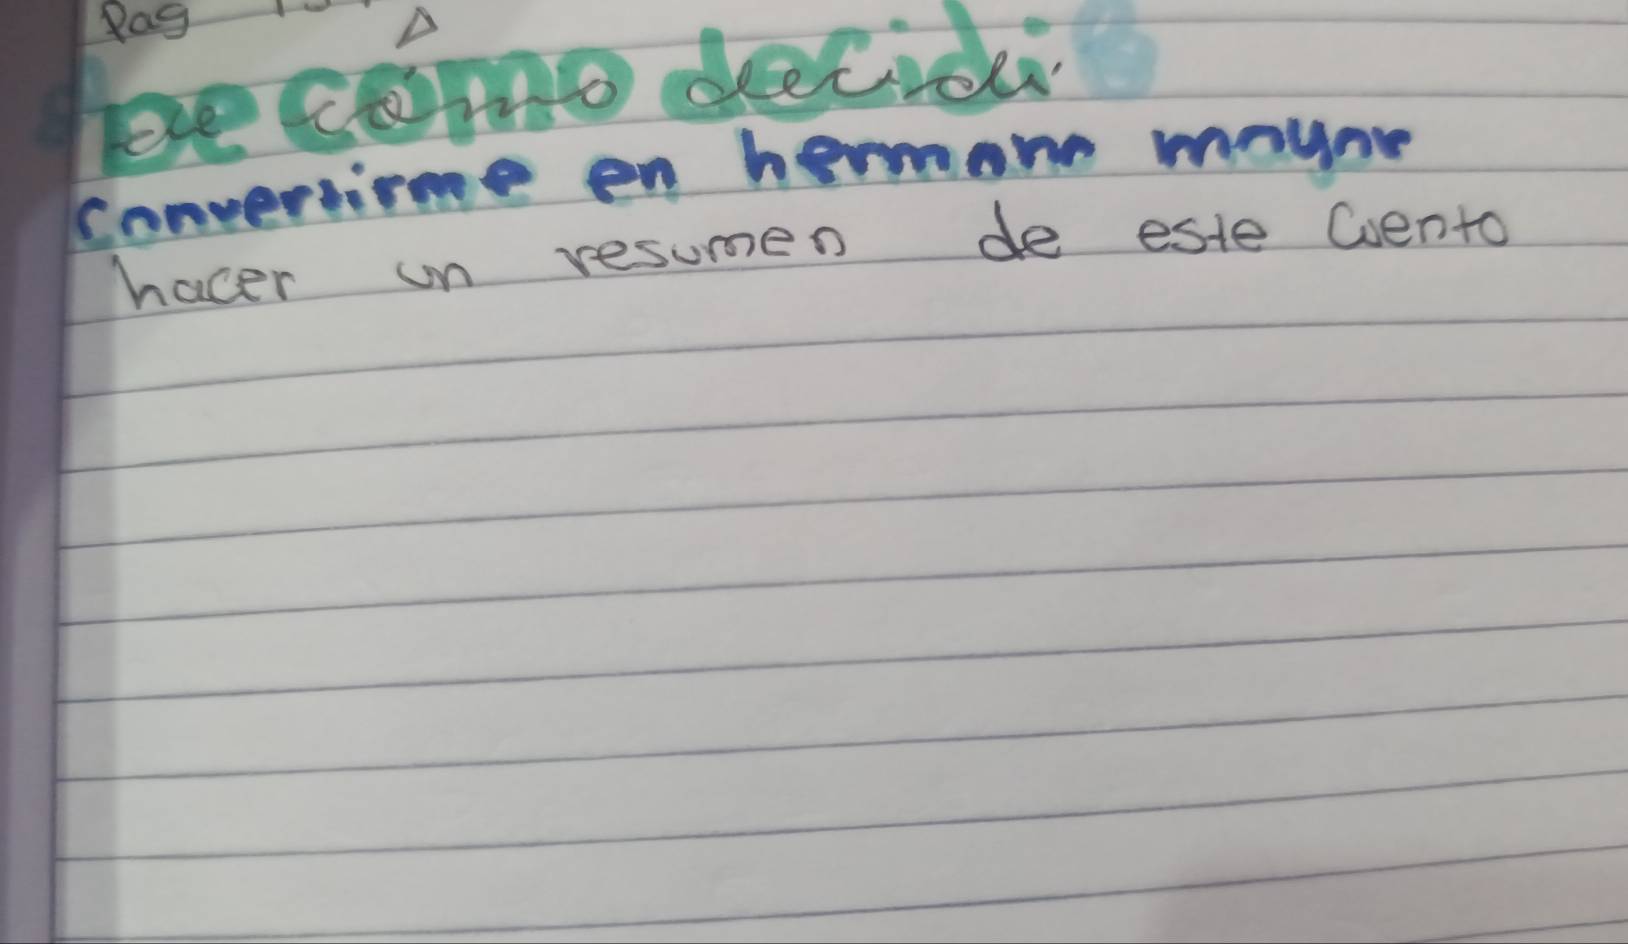 Pag
De cómo decidi
convertirme en hermano mayor
hacer un resumen de este Cuento